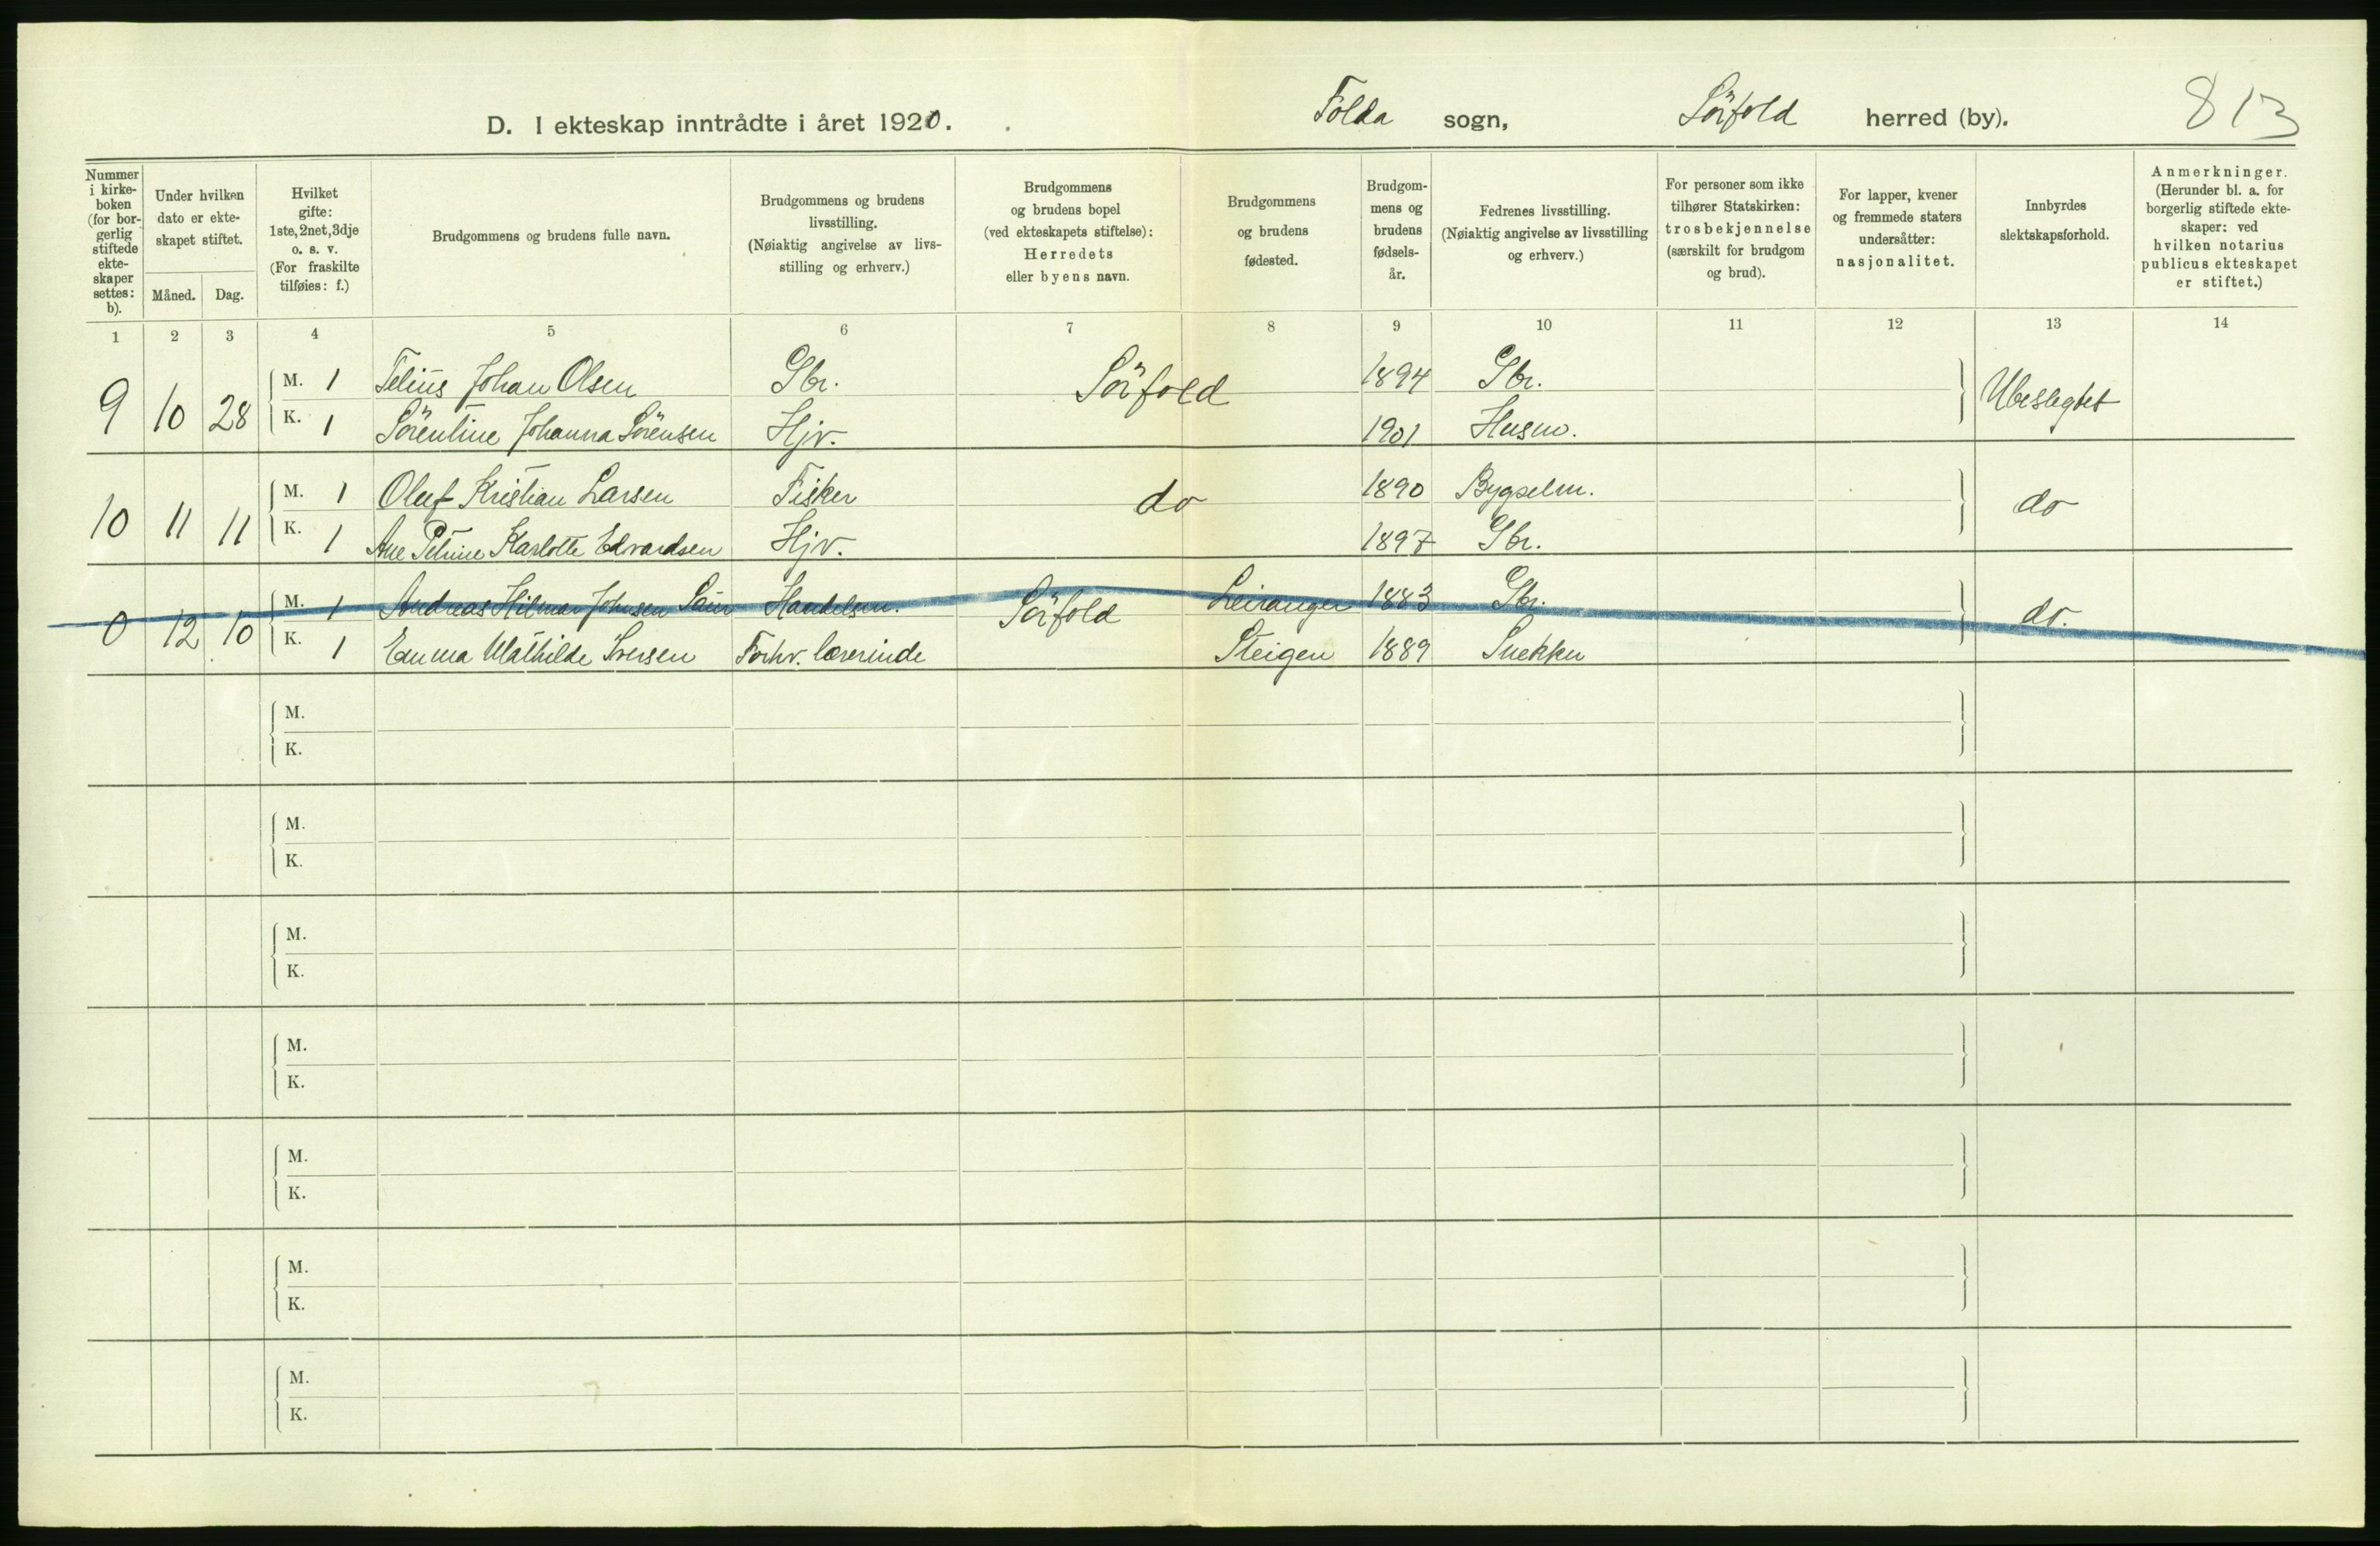 D. I ekteskap inntrådte i året 1920. Folda sogn, Sörfold herred (by). 813
Nummer i kirke-boken (for bor-gerlig stiftede ekte-skaper settes: b).
Under hvilken dato er ekte-skapet stiftet.
Måned. Dag.
Hvilket gifte: 1ste, 2net, 3dje o. s. v. (For fraskilte tilføies: f.)
Brudgommens og brudens fulle navn.
Brudgommens og brudens livsstilling. (Nøiaktig angivelse av livs-stilling og erhverv.)
Brudgommens og brudens bopel (ved ekteskapets stiftelse): Herredets eller byens navn.
Brudgommens og brudens fødested.
Brudgom-mens og brudens fødsels-år.
Fedrenes livsstilling. (Nøiaktig angivelse av livsstilling og erhverv.)
For personer som ikke tilhører Statskirken: trosbekjennelse (særskilt for brudgom og brud).
For lapper, kvener og fremmede staters undersåtter: nasjonalitet.
Innbyrdes slektskapsforhold.
Anmerkninger. (Herunder bl. a. for borgerlig stiftede ekte-skaper: ved hvilken notarius publicus ekteskapet er stiftet.)
1 2 3 4 5 6 7 8 9 10 11 12 13 14
9 10 28 M. 1 Telius Johan Olsen Gbr. Sörfold 1894 Gbr. Ubeslegtet
K. 1 Sörentine Johanna Sörensen Hjv. 1901 Husm.
10 11 11 M. 1 Oluf Kristian Larsen Fisker do 1890 Bygselm. do
K. 1 Ane Petrine Karlotte Edvardsen Hjv. 1897 Gbr.
0 12 10 M. 1 Andreas Hilmar Johnsen Handelsm. Sörfold Leiranger 1883 Gbr. do.
K. 1 Emma Mathilde Iversen Forhv. lærerinde Steigen 1889 Snekker
M.
K.
M.
K.
M.
K.
M.
K.
M.
K.
M.
K.
M.
K.